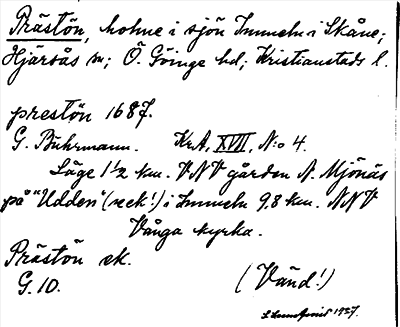 Prästön, holme i sjön Immeln i Skåne;
Hjärsås sn; Ö. Göinge hd; Kristianstads l.
prestön 1687.
G. Buhrmann. KrA, XVIII, N:o 4.
Läge 1 1/2 km. VNV gården N. Mjönäs
på "Udden" (veck!) i Immeln 9.8 km. NNV
Vånga kyrka.
Prästön ek.
G. 10. (Vänd!)
1927.